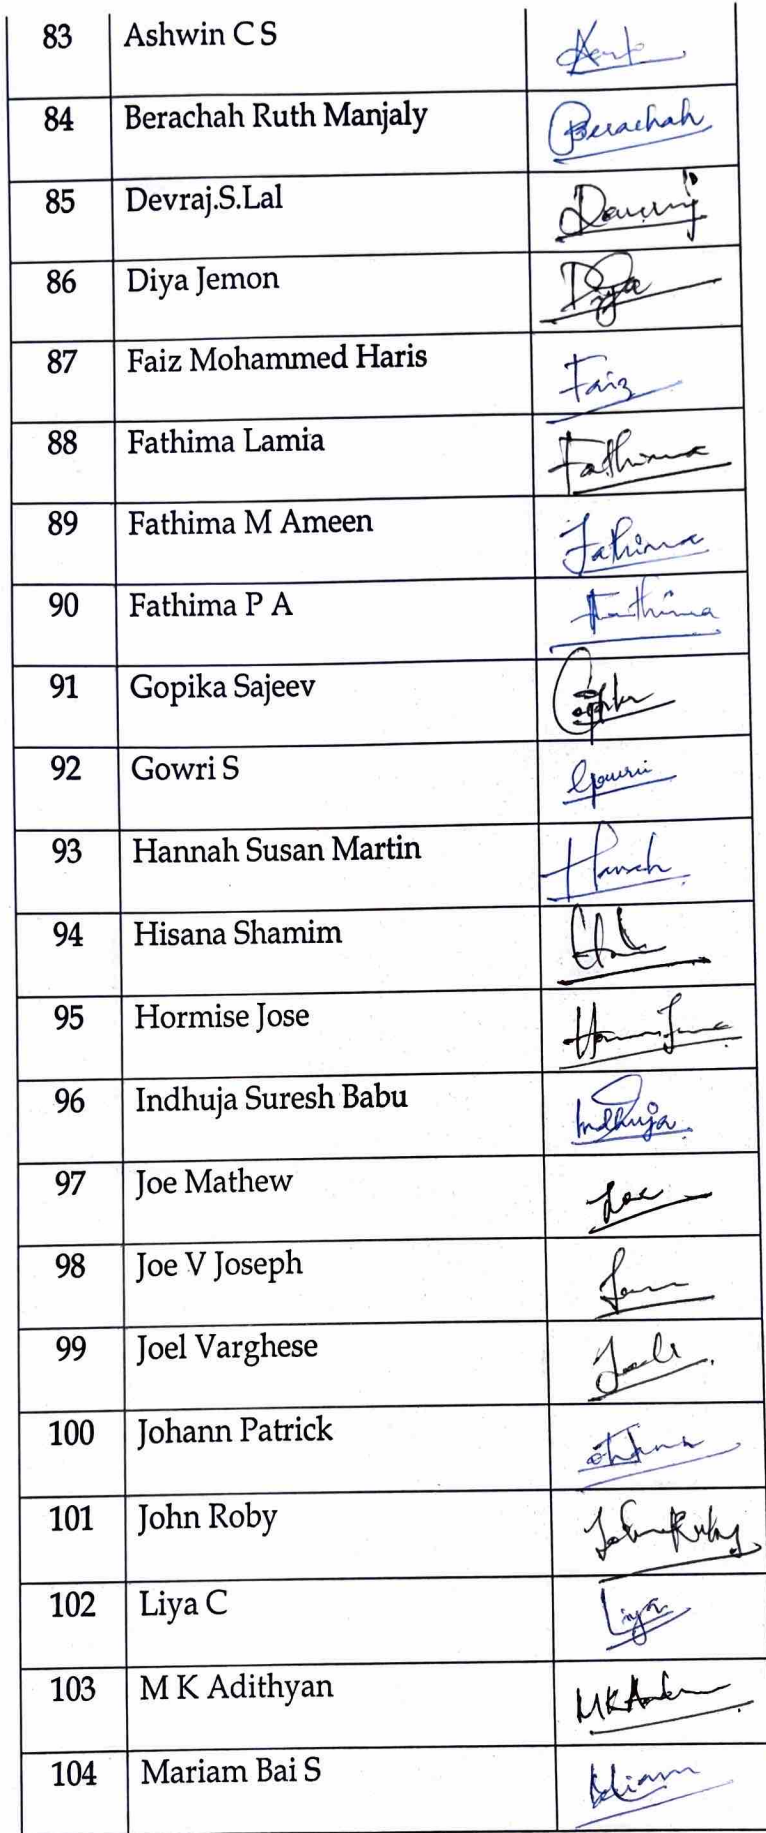 83 Ashwin C S
84 Berachah Ruth Manjaly Berachah
85 Devraj.S.Lal
86 Diya Jemon Diya
87 Faiz Mohammed Haris Faiz
88 Fathima Lamia Fathima
89 Fathima M Ameen Fathima
90 Fathima P A Fathima
91 Gopika Sajeev
92 Gowri S Gowri
93 Hannah Susan Martin
94 Hisana Shamim
95 Hormise Jose
96 Indhuja Suresh Babu Indhuja
97 Joe Mathew Joe
98 Joe V Joseph
99 Joel Varghese
100 Johann Patrick
101 John Roby
102 Liya C Liya
103 M K Adithyan
104 Mariam Bai S